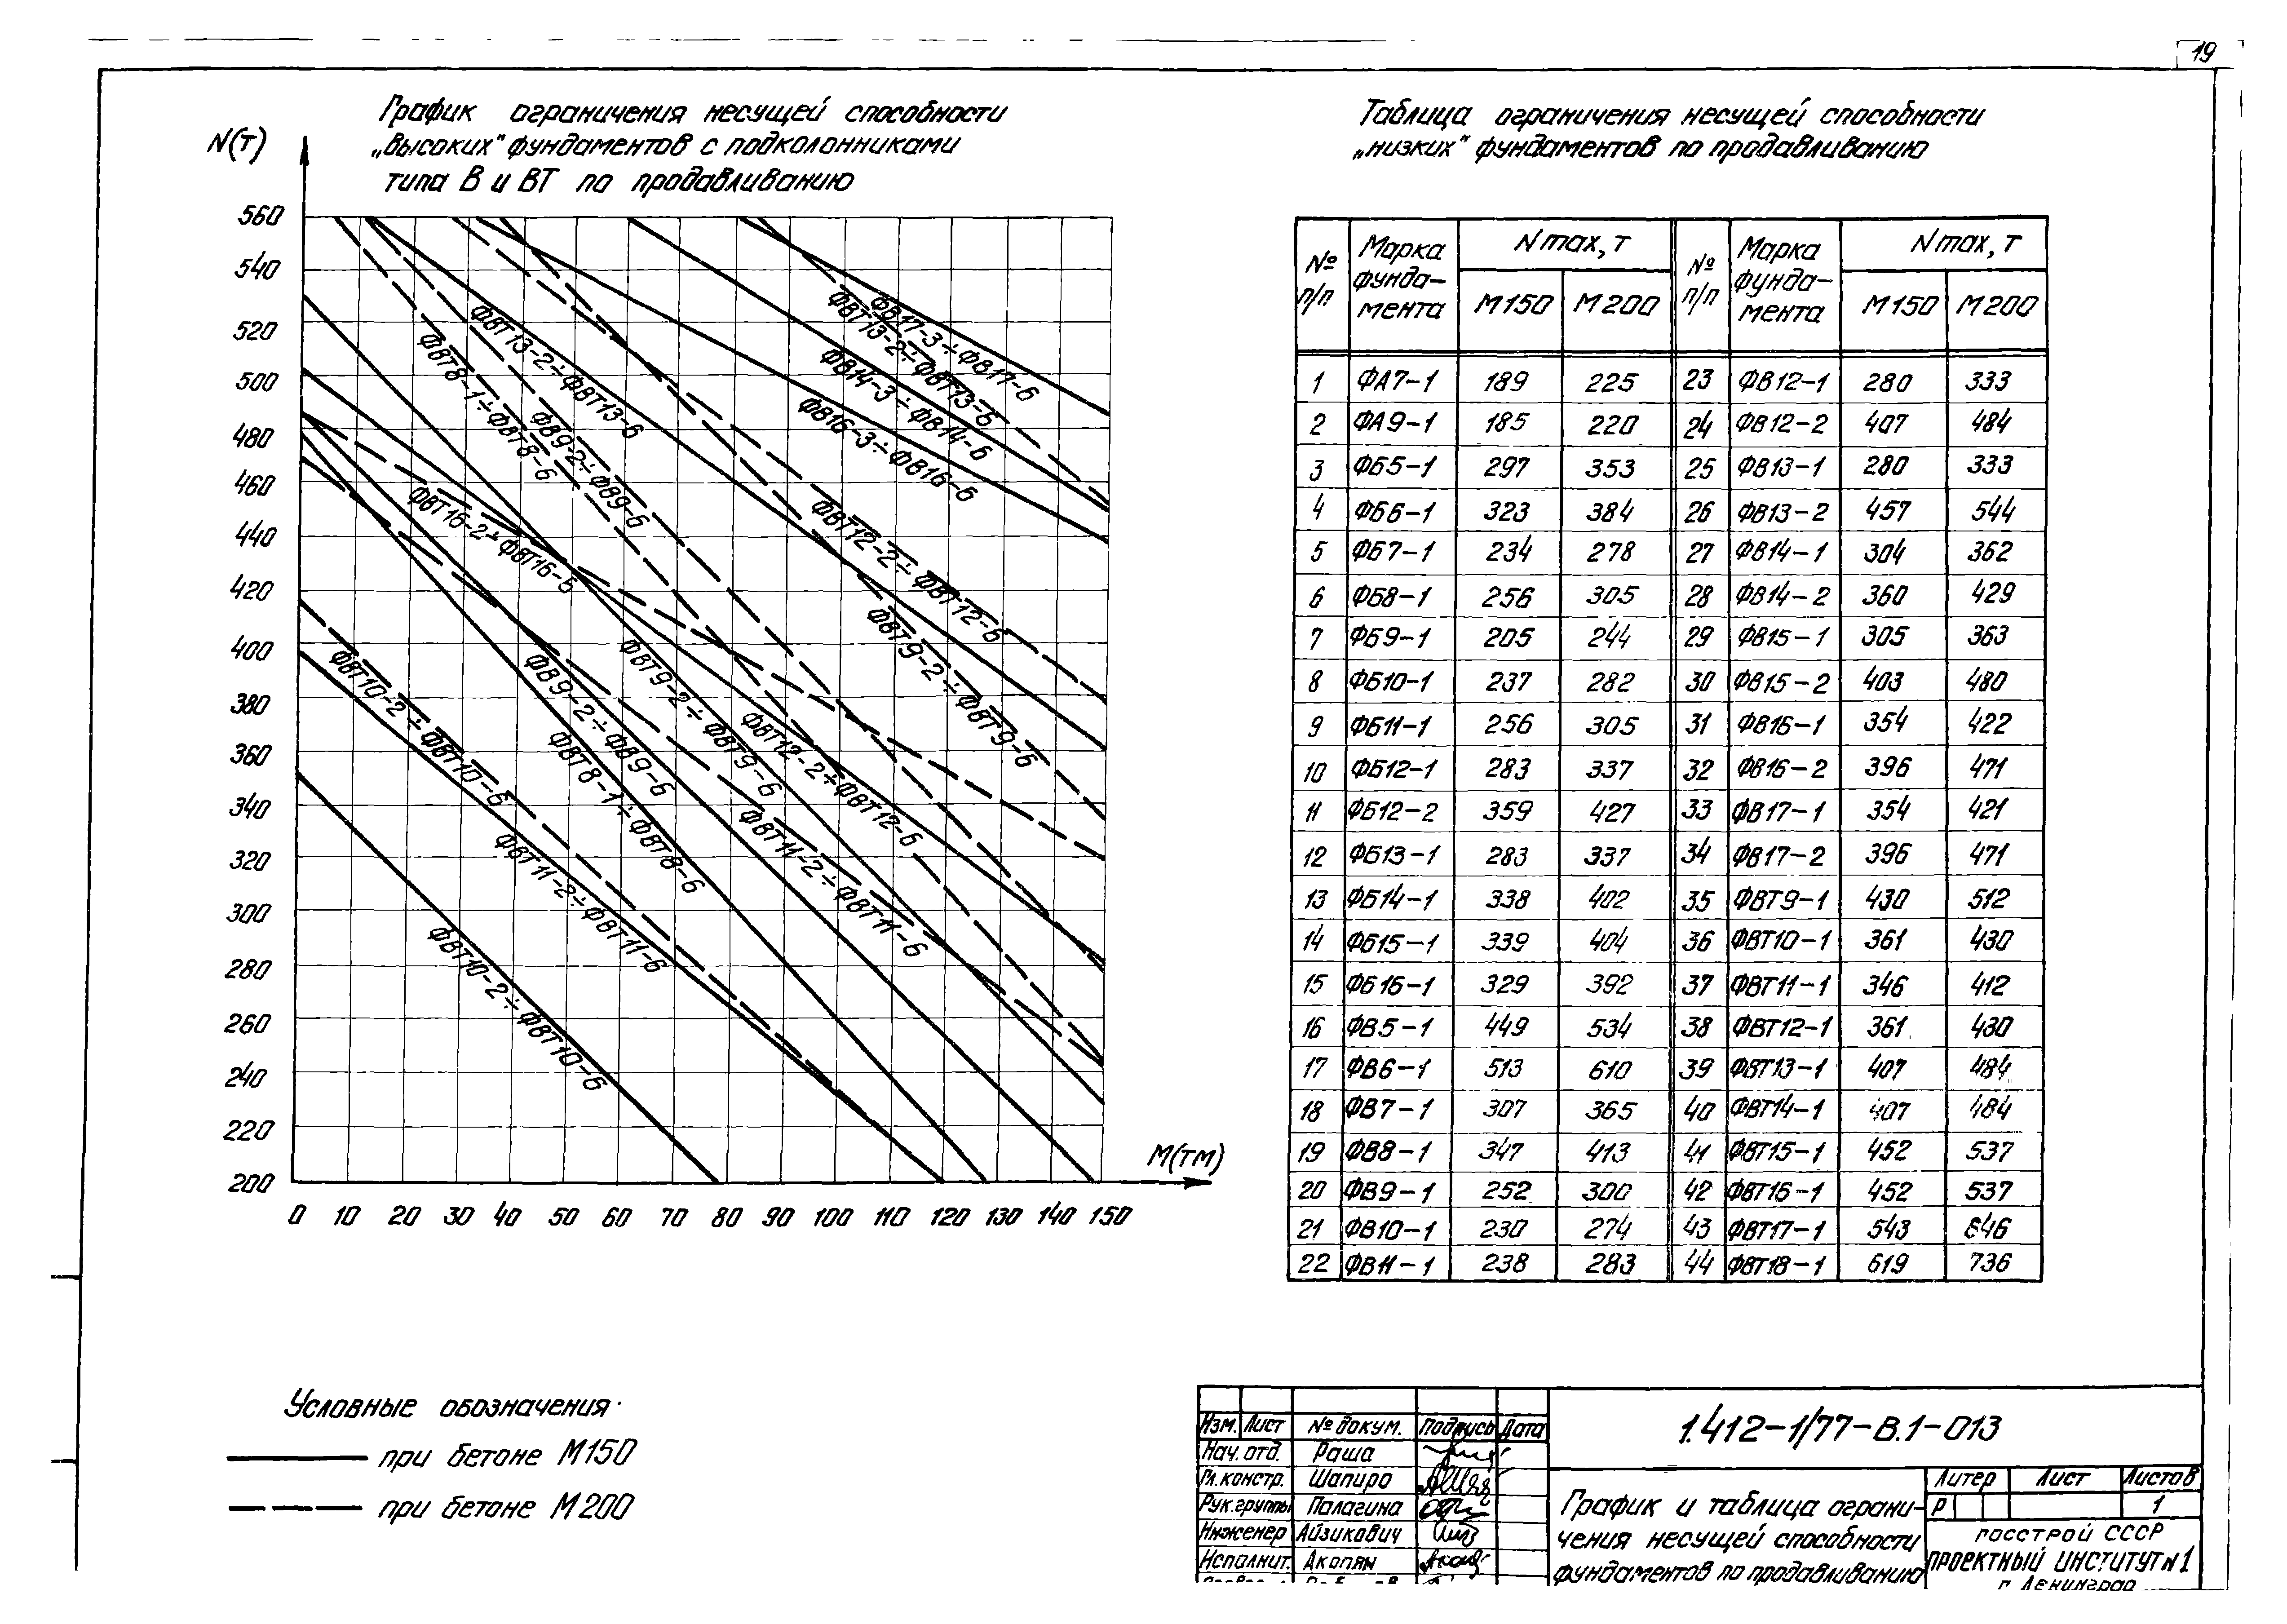 19
График ограничения несущей способности
„высоких" фундаментов с подколонниками
типа В и ВТ по продавливанию
N(т)
560
540
520
500
480
460
440
420
400
380
360
340
320
300
280
260
240
220
200
0 10 20 30 40 50 60 70 80 90 100 110 120 130 140 150
М(тм)
ФВ17-3÷ФВ17-6
ФВТ13-2÷ФВТ13-6
ФВ14-3÷ФВ14-6
ФВ16-3÷ФВ16-6
ФВТ13-2÷ФВТ13-6
ФВТ8-1÷ФВТ8-6
ФВ9-2÷ФВ9-6
ФВТ16-2÷ФВТ16-6
ФВТ12-2÷ФВТ12-6
ФВТ9-2÷ФВТ9-6
ФВТ10-2÷ФВТ10-6
ФВ9-2÷ФВ9-6
ФВТ9-2÷ФВТ9-6
ФВТ12-2÷ФВТ12-6
ФВТ8-1÷ФВТ8-6
ФВТ11-2÷ФВТ11-6
ФВТ11-2÷ФВТ11-6
ФВТ10-2÷ФВТ10-6
Условные обозначения:
при бетоне М150
при бетоне М200
Таблица ограничения несущей способности
„низких" фундаментов по продавливанию
№ п/п Марка фунда-мента Nmax, т № п/п Марка фунда-мента Nmax, т
М150 М200 М150 М200
1 ФА7-1 189 225 23 ФВ12-1 280 333
2 ФА9-1 185 220 24 ФВ12-2 407 484
3 ФБ5-1 297 353 25 ФВ13-1 280 333
4 ФБ6-1 323 384 26 ФВ13-2 457 544
5 ФБ7-1 234 278 27 ФВ14-1 304 362
6 ФБ8-1 256 305 28 ФВ14-2 360 429
7 ФБ9-1 205 244 29 ФВ15-1 305 363
8 ФБ10-1 237 282 30 ФВ15-2 403 480
9 ФБ11-1 256 305 31 ФВ16-1 354 422
10 ФБ12-1 283 337 32 ФВ16-2 396 471
11 ФБ12-2 359 427 33 ФВ17-1 354 421
12 ФБ13-1 283 337 34 ФВ17-2 396 471
13 ФБ14-1 338 402 35 ФВТ9-1 430 512
14 ФБ15-1 339 404 36 ФВТ10-1 361 430
15 ФБ16-1 329 392 37 ФВТ11-1 346 412
16 ФВ5-1 449 534 38 ФВТ12-1 361 430
17 ФВ6-1 513 610 39 ФВТ13-1 407 484
18 ФВ7-1 307 365 40 ФВТ14-1 407 484
19 ФВ8-1 347 413 41 ФВТ15-1 452 537
20 ФВ9-1 252 300 42 ФВТ16-1 452 537
21 ФВ10-1 230 274 43 ФВТ17-1 543 646
22 ФВ11-1 238 283 44 ФВТ18-1 619 736
Изм. Лист № докум. Подпись Дата
Нач. отд. Раша
Гл. констр. Шапиро
Рук. группы Палагина
Инженер Айзикович
Исполнит. Акопян
1.412-1/77-В.1-013
График и таблица ограни-
чения несущей способности
фундаментов по продавливанию
Литер Лист Листов
Р 1
ГОССТРОЙ СССР
ПРОЕКТНЫЙ ИНСТИТУТ №1
г. Ленинград